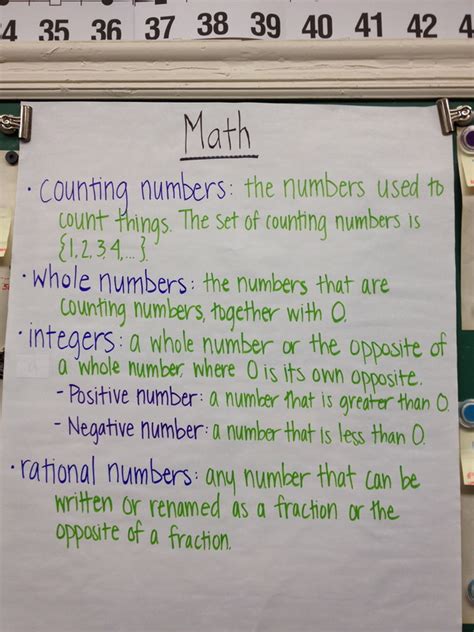 34 35 36 37 38 39 40 41 42 4
Math
• counting numbers: the numbers used to
count things. The set of counting numbers is
{1,2,3,4,...}.
• whole numbers: the numbers that are
counting numbers, together with 0.
• integers: a whole number or the opposite of
a whole number where 0 is its own opposite.
- Positive number: a number that is greater than 0.
- Negative number: a number that is less than 0.
• rational numbers: any number that can be
written or renamed as a fraction or the
opposite of a fraction.